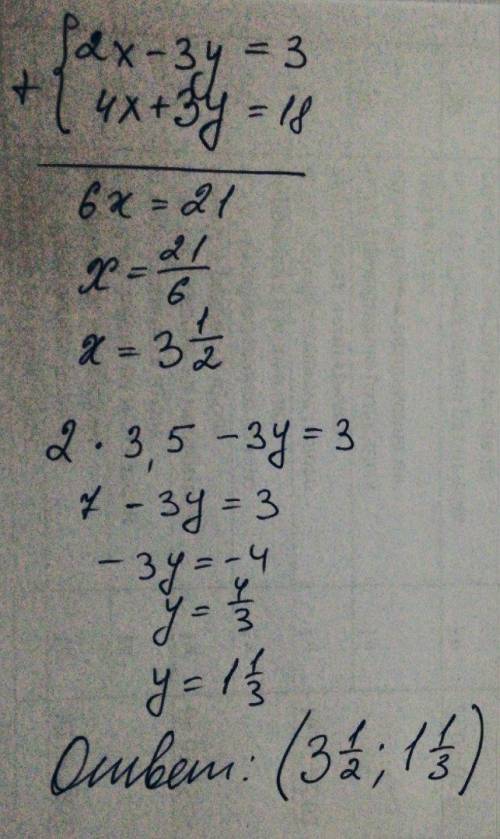 + { 2x - 3y = 3
4x + 3y = 18
6x = 21
x = 21/6
x = 3 1/2
2 · 3,5 - 3y = 3
7 - 3y = 3
- 3y = -4
y = 4/3
y = 1 1/3
Ответ: (3 1/2; 1 1/3)